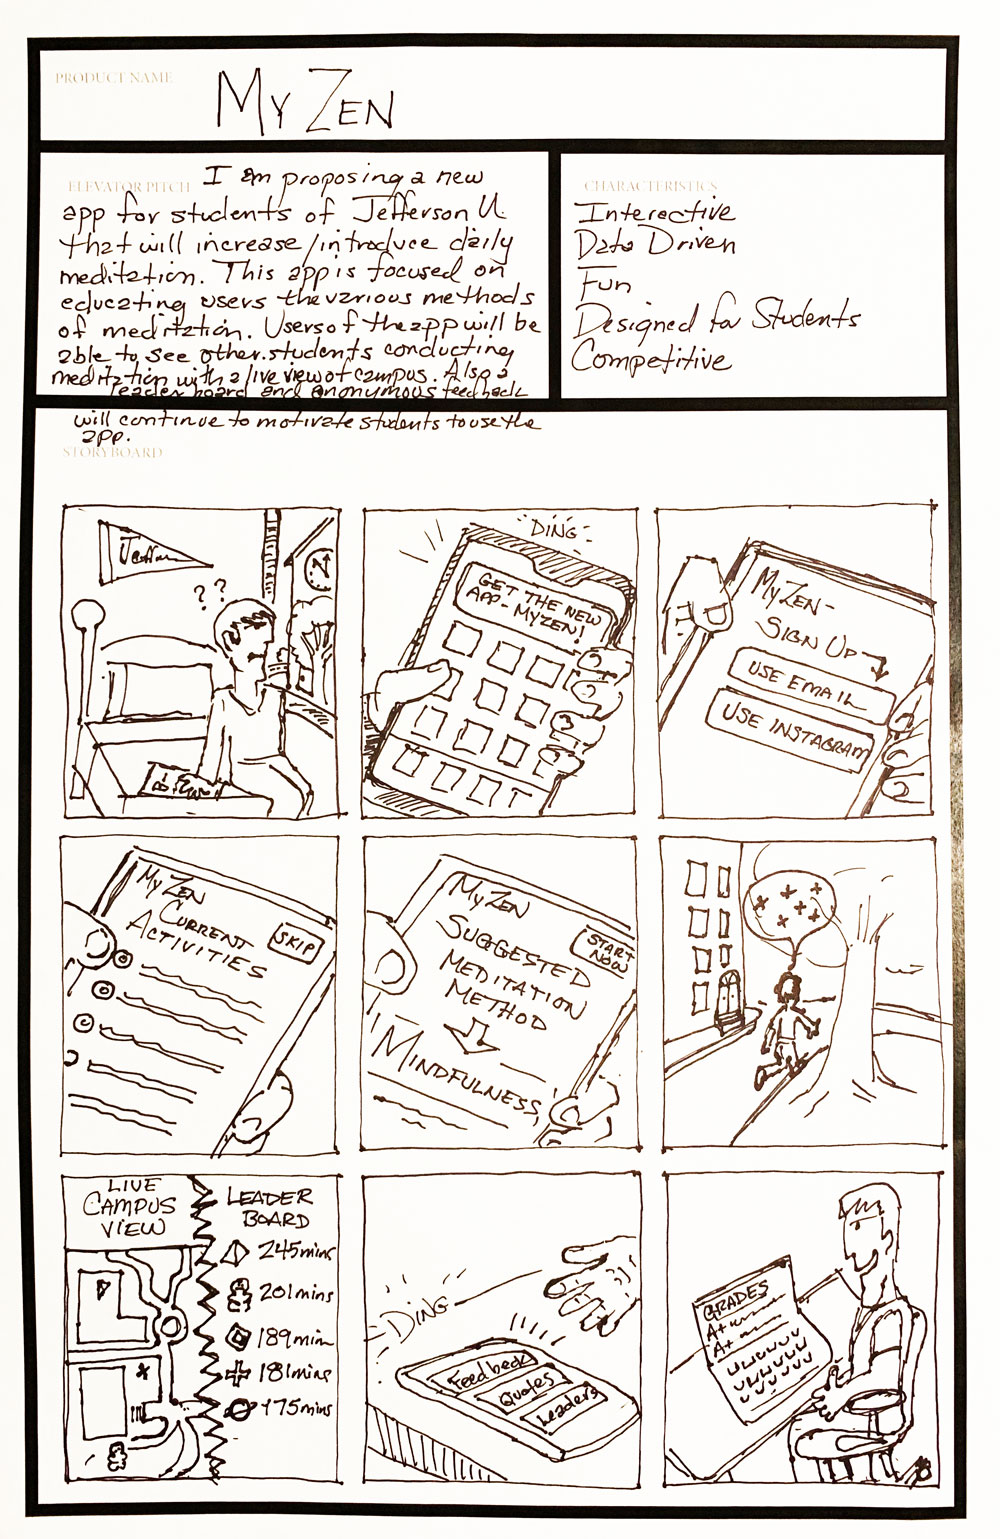 PRODUCT NAME
MY ZEN
ELEVATOR PITCH
I am proposing a new
app for students of Jefferson U.
that will increase/introduce daily
meditation. This app is focused on
educating users the various methods
of meditation. Users of the app will be
able to see other students conducting
meditation with a live view of campus. Also a
leader board and anonymous feedback
will continue to motivate students to use the
app.
CHARACTERISTICS
Interactive
Data Driven
Fun
Designed for Students
Competitive
STORYBOARD
? ?
DING
GET THE NEW
APP - MYZEN!
MYZEN -
SIGN UP
USE EMAIL
USE INSTAGRAM
MYZEN
CURRENT
ACTIVITIES
SKIP
MYZEN
SUGGESTED
MEDITATION
METHOD
START
NOW
MINDFULNESS
LIVE
CAMPUS
VIEW
LEADER
BOARD
245mins
201mins
189min
181mins
175mins
DING
Feedback
Quotes
Leaders
GRADES
A+
A+